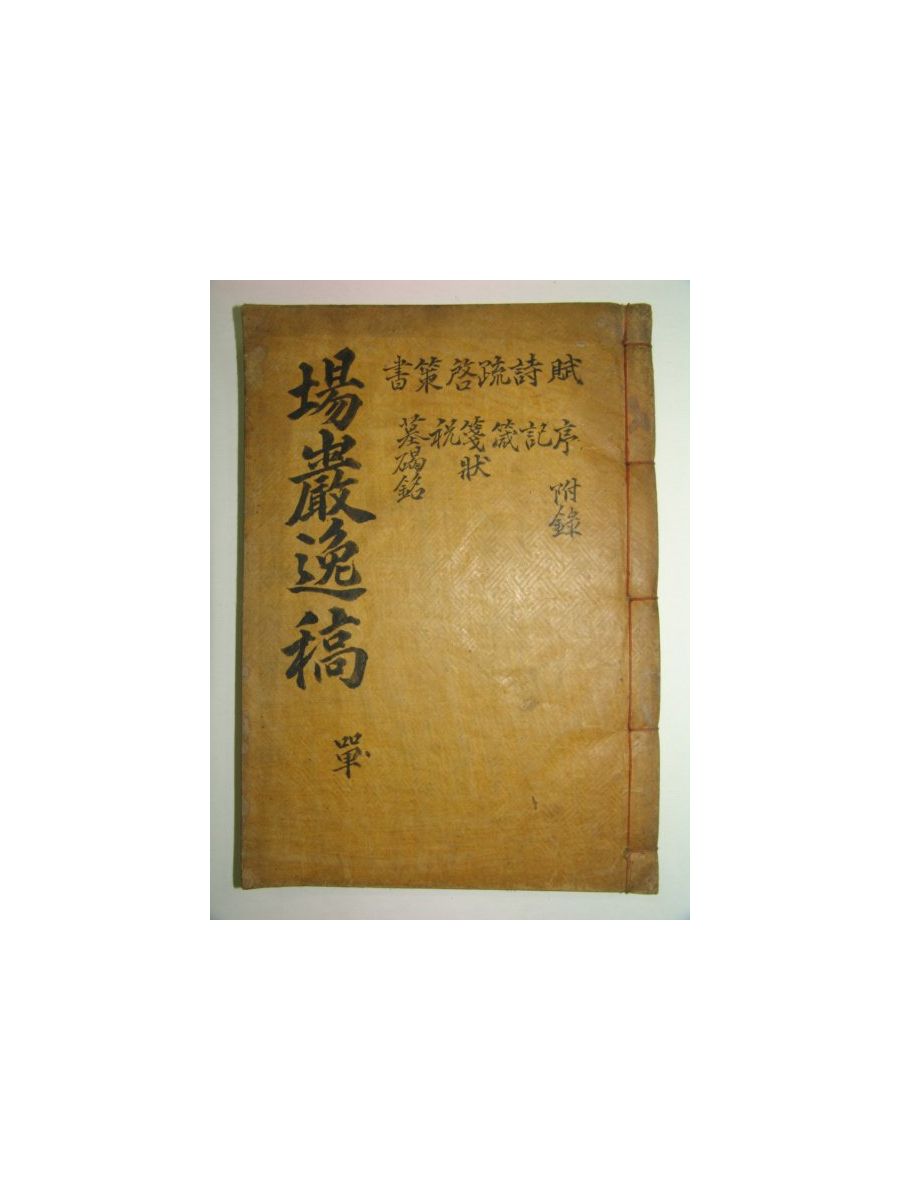 賦詩疏啓策書
序記箴箋祝墓碣銘
狀
附錄
場巖逸稿
單